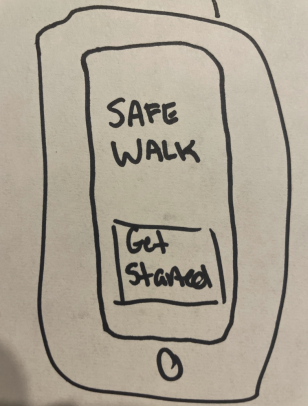 SAFE
WALK
Get
Started